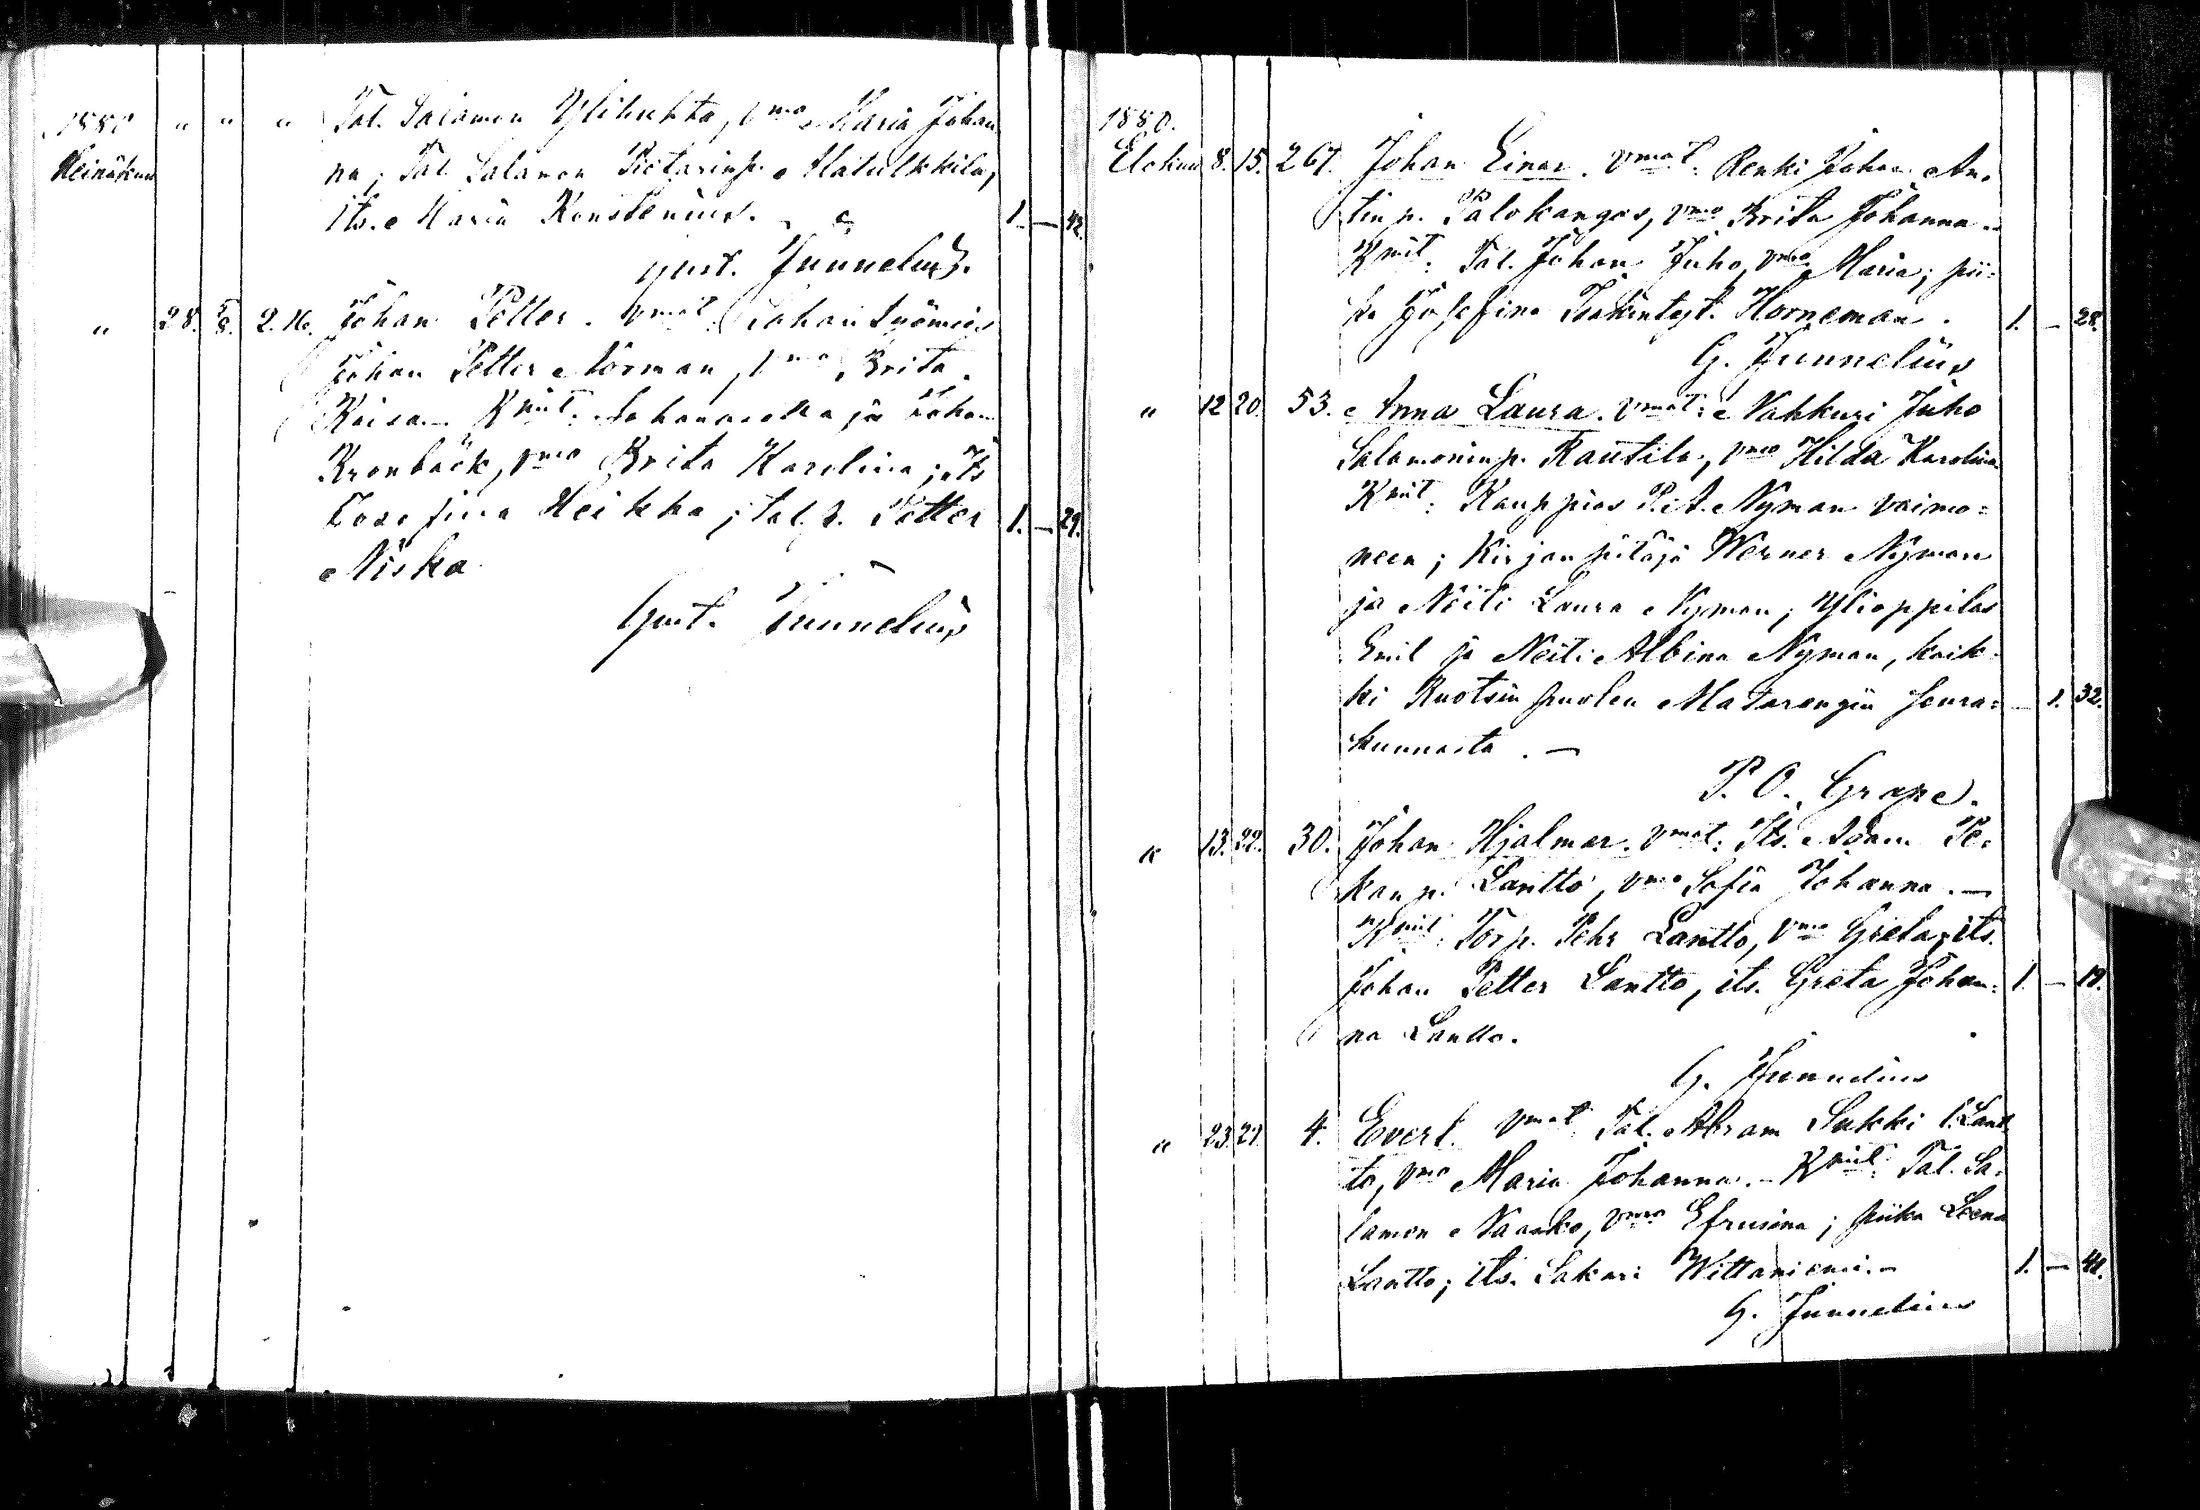 1880 " " " Tal. Salamon Ylihuhta, vmo Maria Johan
Heinäkuu na; Tal. Salamon Pietarinp. Alatulkkila,
its. Maria Konstenius. 1. — 42.
Gust. Junnelius.
" 28. 5/8. 2.16. Johan Petter. Vmat:
Johan Petter Norman, vmo Brita
Kaisa. Kmit: ja Johan
Kronbäck, vmo Brita Karolina; its
Josefina Heikka; tal. p. Petter 1. — 29.
Niska
Gust. Junnelius
1880.
Elokuu 8. 15. 267. Johan Einar. Vmat: Renki Johan An-
tin p. Palokangas, vmo Brita Johanna.
Kmit: Tal. Johan Juho, vmo Maria; pii-
ka Josefina Isakintyt. Horneman. 1. — 28.
G. Junnelius
" 12 20. 53. Anna Laura. Vmat: Nahkuri Juho
Salamoninp. Rautila, vmo Hilda Karolina
Kmit: Kauppias P. A. Nyman vaimo-
neen; Kirjanpitäjä Werner Nyman
ja Neiti Laura Nyman; Ylioppilas
Emil ja Neiti Albina Nyman, kaik-
ki Ruotsin puolen Matarengin seura- — 1. 32.
kunnasta. —
P. O. Grape.
" 13. 22. 30. Johan Hjalmar. Vmat: Its. Adam Pe-
kan p. Lantto, vmo Sofia Johanna. —
Kmit: Torp. Pehr Lantto, vmo Greta; its.
Johan Petter Lantto, its. Greta Johan- 1. — 19.
na Lantto.
G. Junnelius
" 23. 29. 4. Evert. Vmat: Tal. Abram Sukki l. Lant-
to, vmo Maria Johanna. — Kmit: Tal. Sa-
lamon Naasko, vmo Efrusina; piika Leena
Lantto; its. Sakari Wittaniemi. — 1. — 41.
G. Junnelius